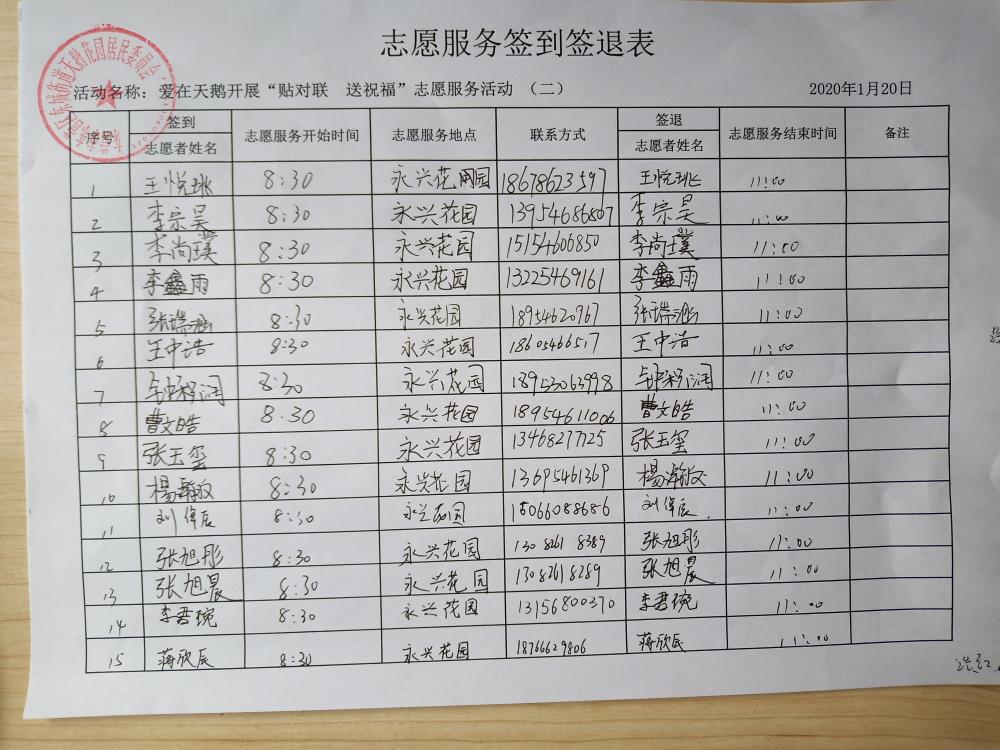 志愿服务签到签退表
活动名称：爱在天鹅开展“贴对联 送祝福”志愿服务活动 （二） 2020年1月20日
序号 签到 志愿者姓名 志愿服务开始时间 志愿服务地点 联系方式 签退 志愿者姓名 志愿服务结束时间 备注
1 王悦珧 8:30 永兴花园 18678623597 王悦珧 11:00
2 李宗昊 8:30 永兴花园 13954686807 李宗昊 11:00
3 李尚璞 8:30 永兴花园 15154606850 李尚璞 11:00
4 李鑫雨 8:30 永兴花园 13225469161 李鑫雨 11:00
5 张瑞涵 8:30 永兴花园 18954620967 张瑞涵 11:00
6 王中浩 8:30 永兴花园 18605466517 王中浩 11:00
7 8:30 永兴花园 18953063998 11:00
8 曹文皓 8:30 永兴花园 18954611006 曹文皓 11:00
9 张玉玺 8:30 永兴花园 13468277725 张玉玺 11:00
10 杨瀚文 8:30 永兴花园 13695461369 杨瀚文 11:00
11 刘倬辰 8:30 永兴花园 15066088686 刘倬辰 11:00
12 张旭彤 8:30 永兴花园 张旭彤 11:00
13 张旭晨 8:30 永兴花园 13082618289 张旭晨 11:00
14 李君琬 8:30 永兴花园 13156800370 李君琬 11:00
15 蒋欣辰 8:30 永兴花园 18766629806 蒋欣辰 11:00